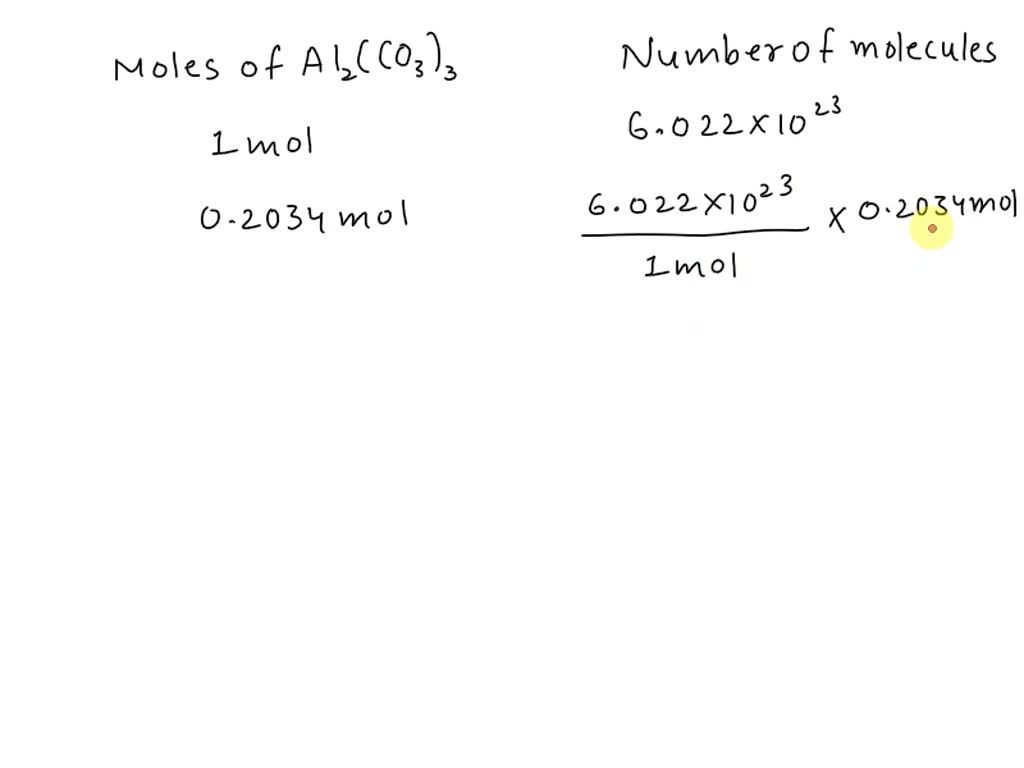 Moles of Al₂(CO₃)₃
Number of molecules
1 mol
6.022 × 10²³
0.2034 mol
6.022 × 10²³
× 0.2034 mol
1 mol